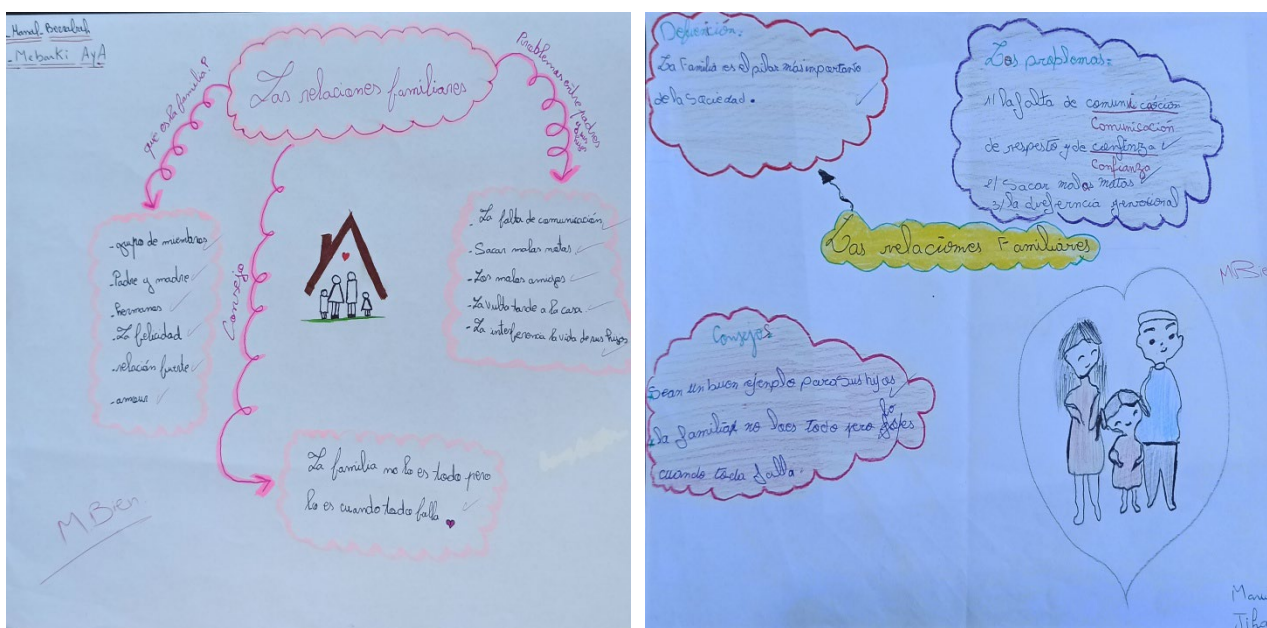 - Mebarki AyA
Las relaciones familiares
que es la familia?
Problemas entre padres
- grupo de miembros
- Padre y madre
- hermanos
- La felicidad
- relación fuerte
- amour
Consejo
- La falta de comunicación
- Sacar malas notas
- Los malos amigos
- La vulta tarde a la casa
- La interferencia la vida de sus hijos
La familia no lo es todo pero
lo es cuando todo falla
M Bien
Definición:
La Familia es el pilar más importante
de la Sociedad.
Los problemas:
1/ la falta de comunicación
Comunicación
de respesto y de confinza
Confianza
2/ Sacar malas notas
3/ la
Las relaciones Familiares
M Bien
Consejos
Sean un buen ejenplo para sus hijos
la familia no loes todo pero lo es
cuando toda falla.